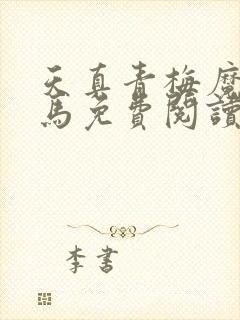 天真青梅魔
馬免費閱讀
李書